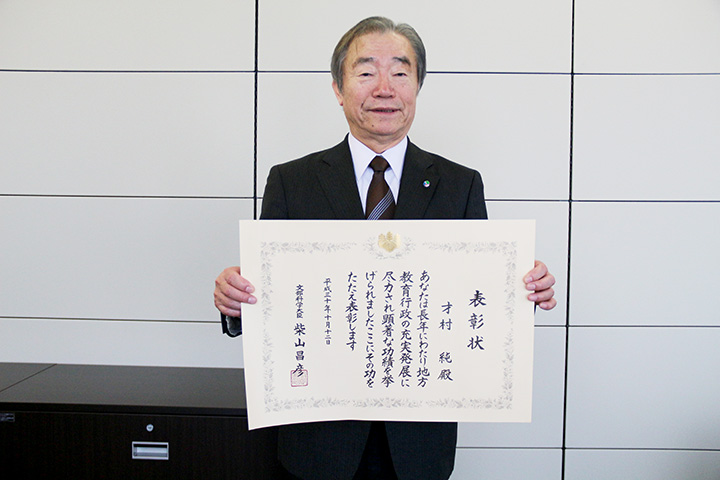 表彰状
才村 純 殿
あなたは長年にわたり地方
教育行政の充実発展に
尽力され顕著な功績を挙
げられましたここにその功を
たたえ表彰します
平成三十年十月十二日
文部科学大臣 柴山昌彦